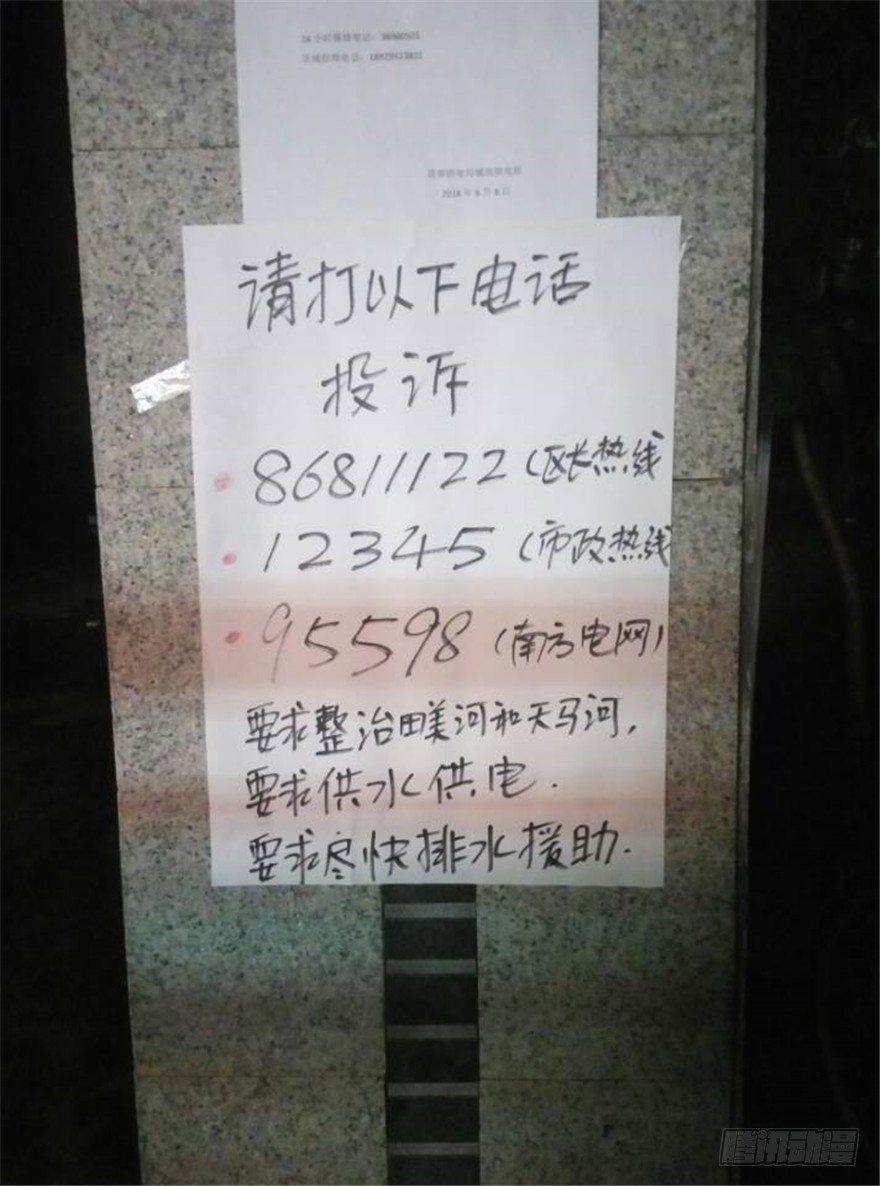 24小时报修电话：36980503
请打以下电话
投诉
86811122（区长热线
12345（市政热线
95598（南方电网）
要求整治田美河和天马河，
要求供水供电.
要求尽快排水援助.
腾讯动漫